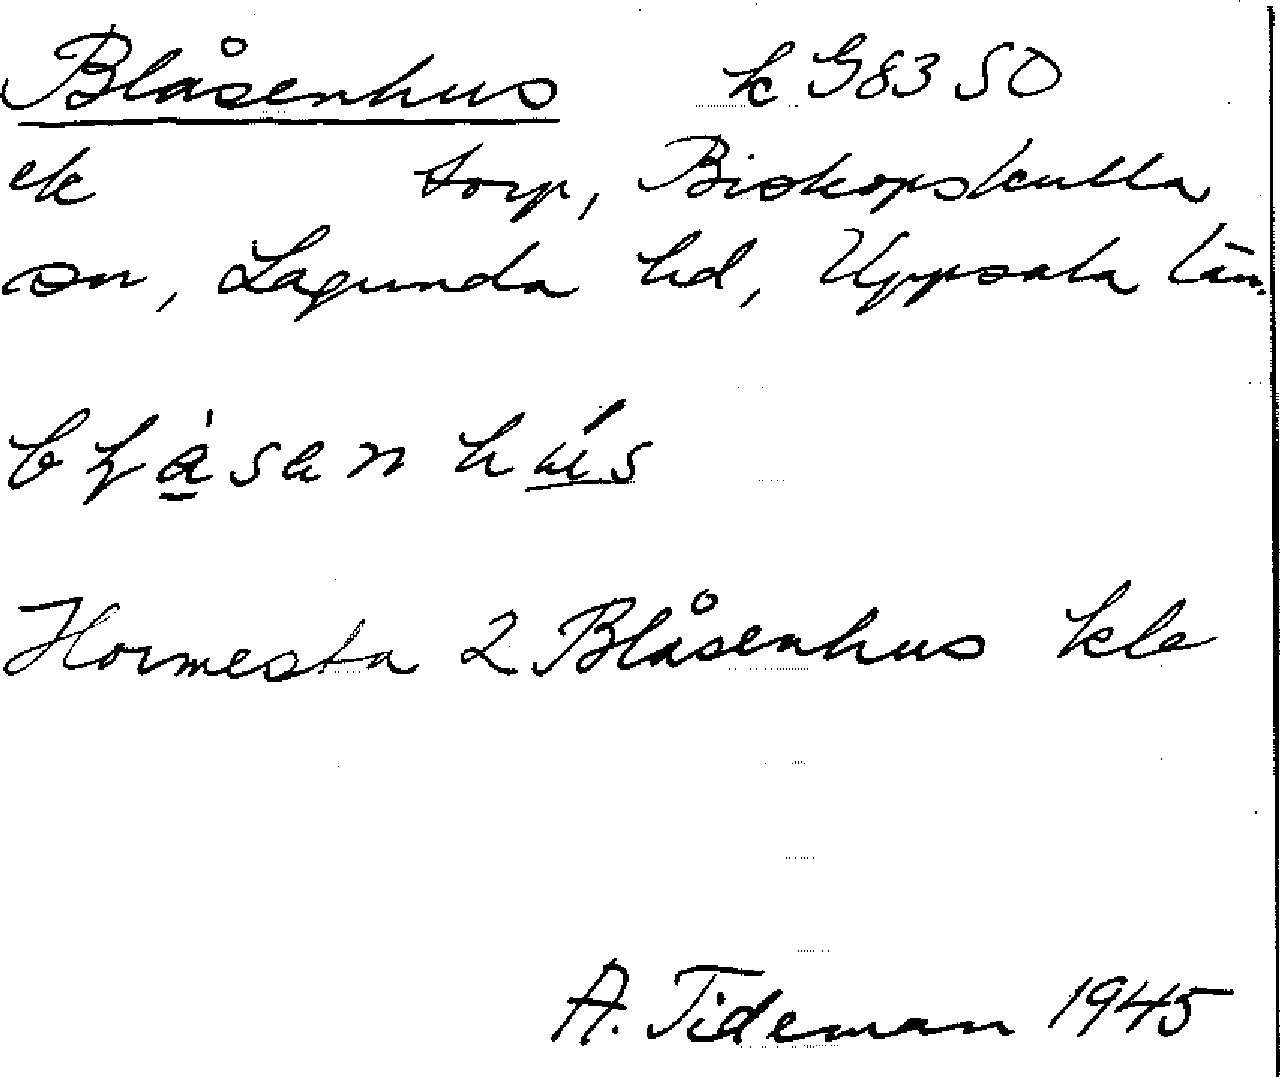 Blåsenhus k G83 50
ek torp, Biskopskulla
sn, Lagunda hd, Uppsala län.
Hormesta 2 Blåsenhus kle
A. Tideman 1945